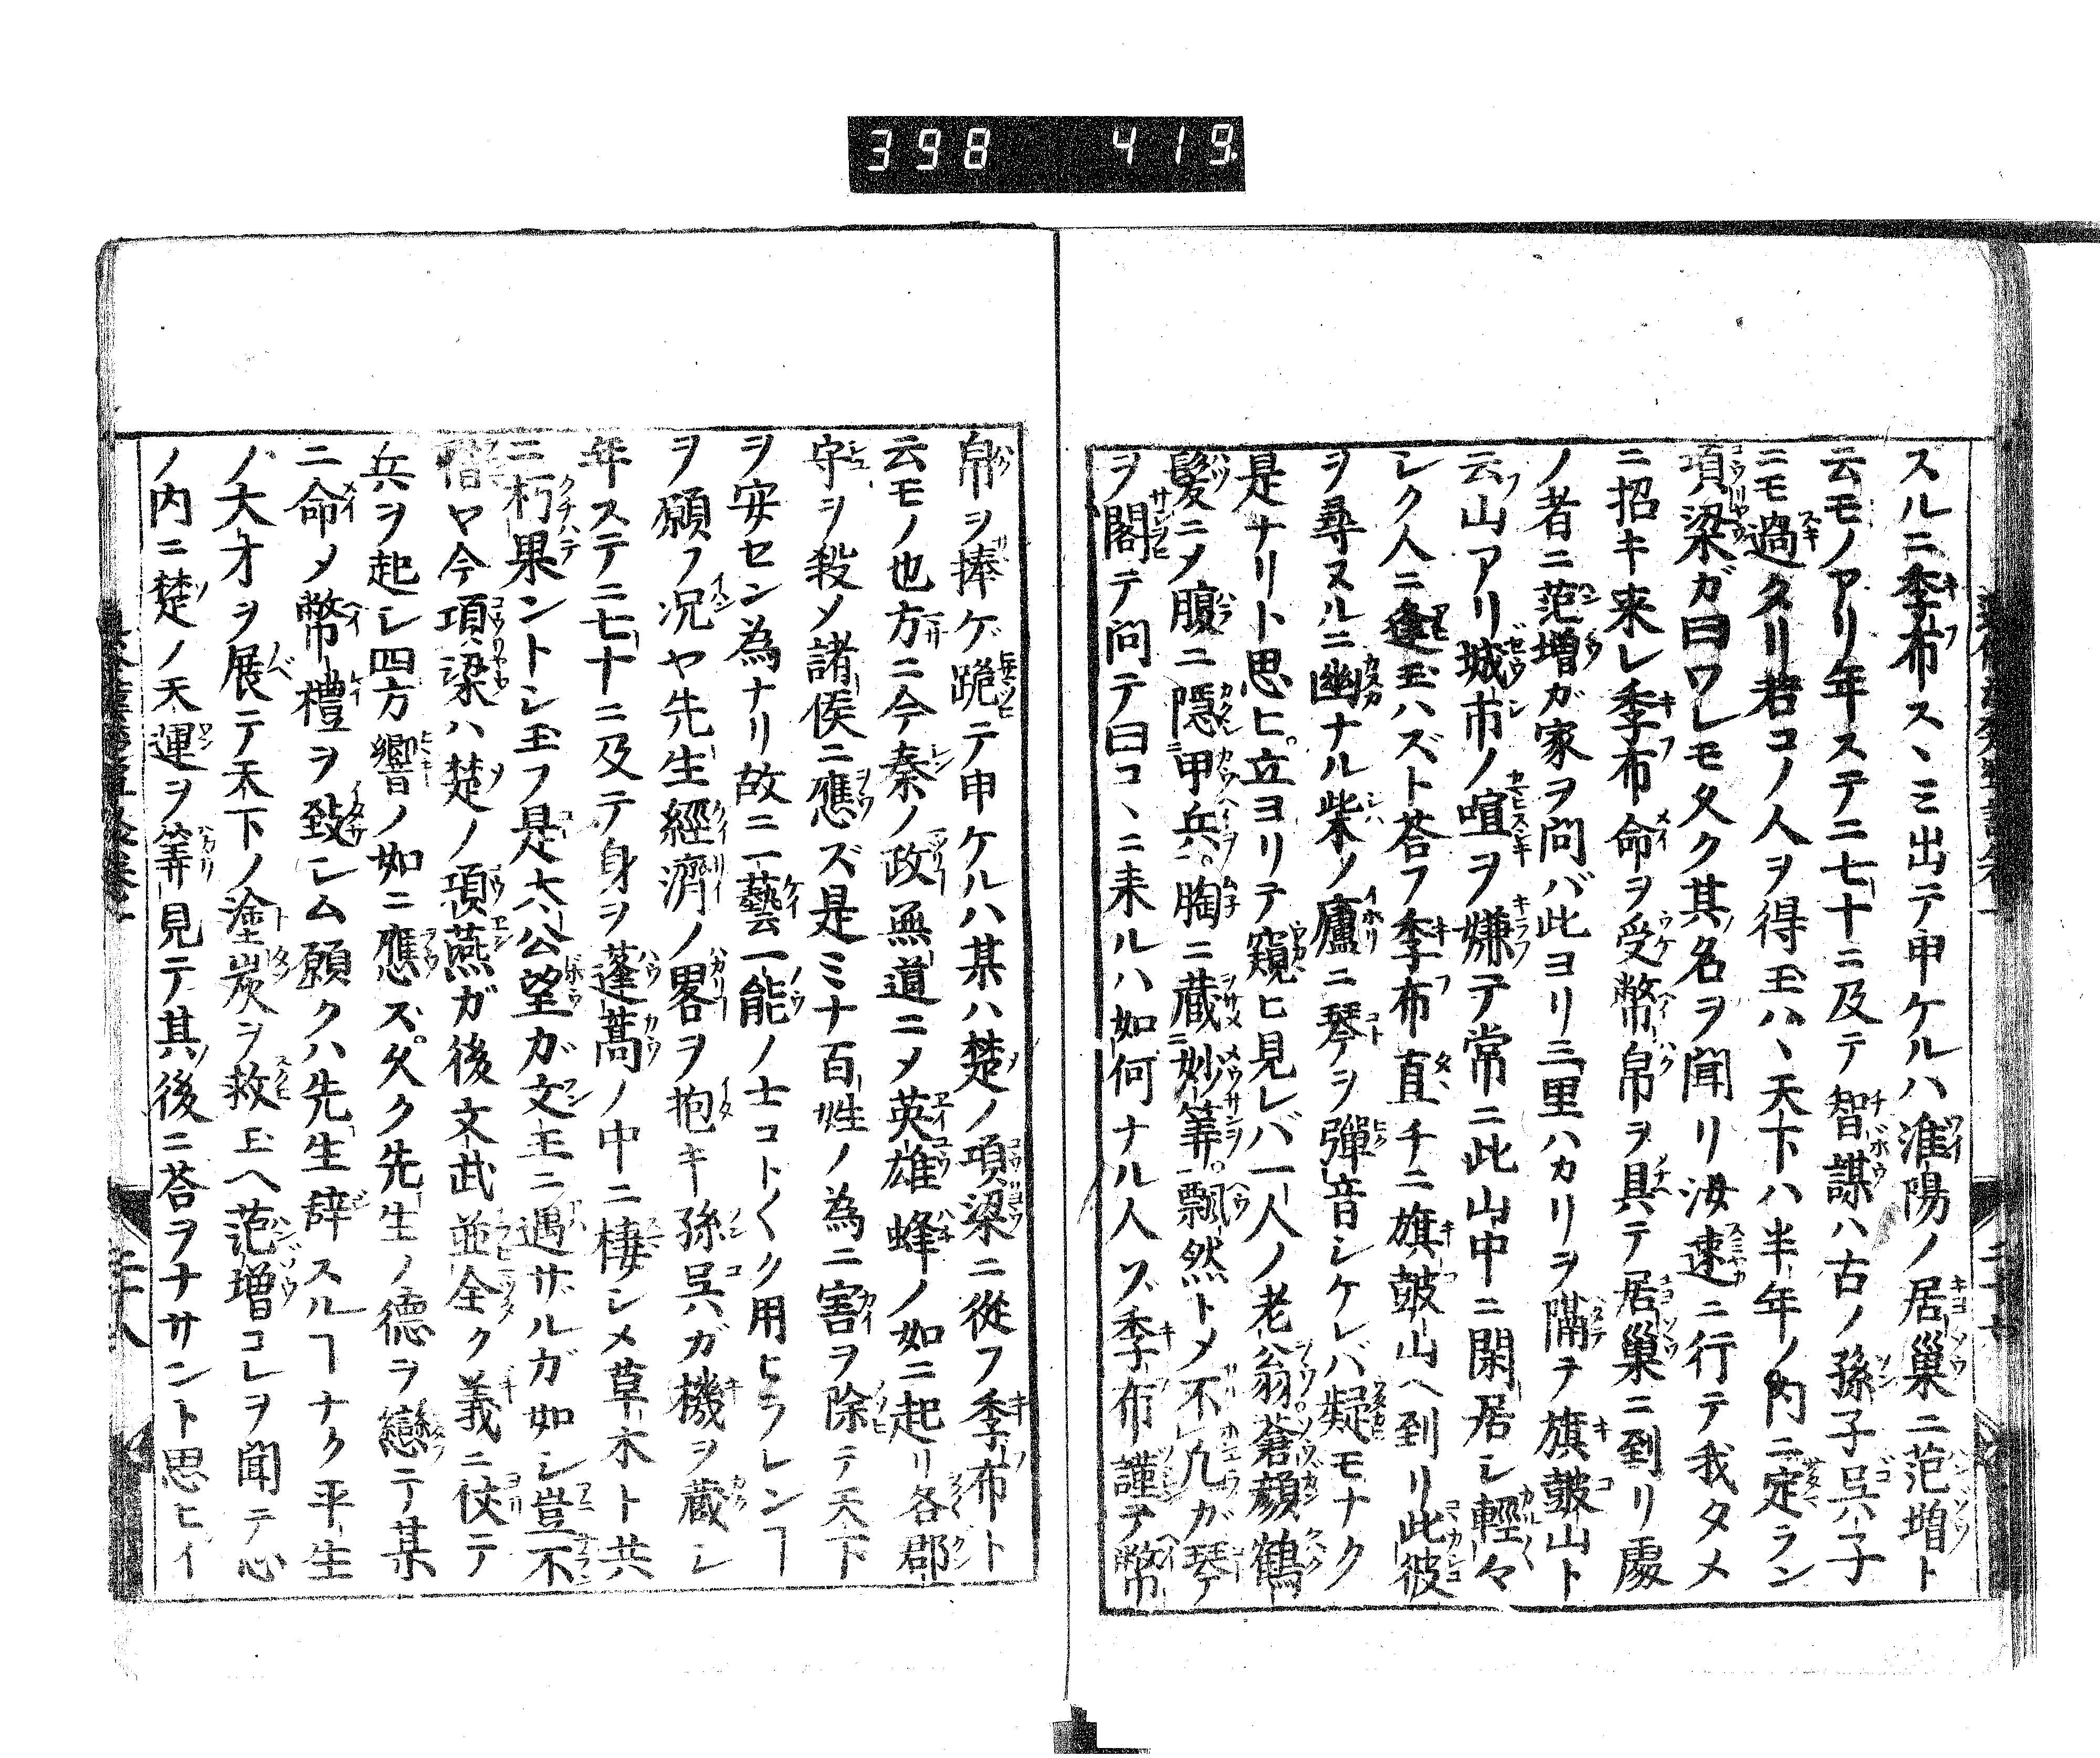 398 419
スルニ季布スヽミ出テ申ケルハ淮陽ノ居巢ニ范増ト
云モノアリ年ステニ七十ニ及テ智謀ハ古ノ孫子呉子
ニモ過タリ君コノ人ヲ得玉ハヽ天下ハ半年ノ内ニ定ラン
項梁ガ曰ワレモ久ク其名ヲ聞リ汝速ニ行テ我タメ
ニ招キ来レ季布命ヲ受幣帛ヲ具テ居巢ニ到リ處
ノ者ニ范増ガ家ヲ問バ此ヨリ三里ハカリヲ隔テ旗皷山ト
云山アリ城市ノ喧ヲ嫌テ常ニ此山中ニ閑居シ輕々
シク人ニ逢玉ハズト荅フ季布直チニ旗皷山ヘ到リ此彼
ヲ尋ヌルニ幽ナル柴ノ廬ニ琴ヲ彈音シケレバ疑モナク
是ナリト思ヒ立ヨリテ窺ヒ見レバ一人ノ老翁蒼顔鶴
髪ニメ腹ニ隱甲兵胸ニ蔵妙筭飄然トメ不凡ガ琴
ヲ閣テ問テ曰コヽニ来ルハ如何ナル人ゾ季布謹テ幣
帛ヲ捧ゲ跪テ申ケルハ某ハ楚ノ項梁ニ從フ季布ト
云モノ也方ニ今秦ノ政無道ニメ英雄蜂ノ如ニ起リ各郡
守ヲ殺メ諸侯ニ應ズ是ミナ百姓ノ為ニ害ヲ除テ天下
ヲ安セン為ナリ故ニ一藝一能ノ士コト〱ク用ヒラレンヿ
ヲ願フ况ヤ先生經濟ノ畧ヲ抱キ孫呉ガ機ヲ蔵シ
年ステニ七十ニ及テ身ヲ蓬蒿ノ中ニ棲シメ草木ト共
ニ朽果ントシ玉フ是太公望ガ文王ニ遇サルガ如シ豈不
惜ヤ今項梁ハ楚ノ項燕ガ後文武並全ク義ニ仗テ
兵ヲ起シ四方響ノ如ニ應ズ久ク先生ノ德ヲ戀テ某
ニ命メ幣禮ヲ致シム願クハ先生辞スルヿナク平生
ノ大才ヲ展テ天下ノ塗炭ヲ救玉ヘ范増コレヲ聞テ心
ノ内ニ楚ノ天運ヲ筭見テ其後ニ荅ヲナサント思ヒイ